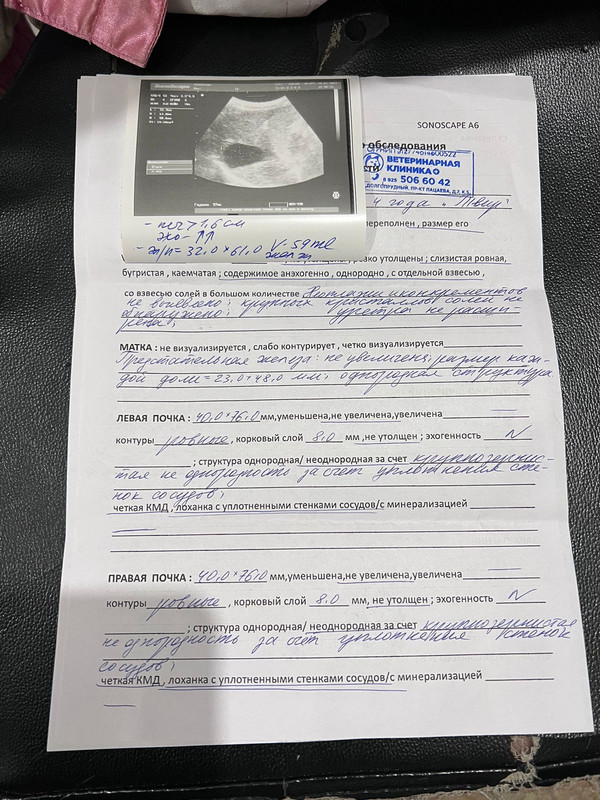 SONOSCAPE A6
о обследования
ВЕТЕРИНАРНАЯ
КЛИНИКА
8 925 506 60 42
ДОЛГОПРУДНЫЙ, ПР-КТ ПАЦАЕВА, Д.7, К.5,
4 года
переполнен , размер его
1,6 см
эхо- ↑↑
= 32,0 × 61,0 V- 59ml
утолщены ; слизистая ровная,
бугристая , каемчатая ; содержимое анэхогенно , однородно , с отдельной взвесью ,
со взвесью солей в большом количестве
не выявлено; крупных кристаллов солей не
обнаружено; уретра не расши-
рена;
МАТКА : не визуализируется , слабо контурирует , четко визуализируется
Предстательная железа: не увеличена; размер каж-
дой доли = 23,0 × 48,0 мм; однородная структура
ЛЕВАЯ ПОЧКА : 40,0×76,0 мм,уменьшена,не увеличена,увеличена
контуры ровные , корковый слой 8,0 мм ,не утолщен ; эхогенность N
; структура однородная/ неоднородная за счет крупнозернис-
тая не однородность за счет уплотнения сте-
нок сосудов;
четкая КМД , лоханка с уплотненными стенками сосудов/с минерализацией
ПРАВАЯ ПОЧКА : 40,0×76,0 мм,уменьшена,не увеличена,увеличена
контуры ровные , корковый слой 8,0 мм, не утолщен ; эхогенность N
; структура однородная/ неоднородная за счет крупнозернистая
не однородность за счет уплотнения стенок
сосудов;
четкая КМД , лоханка с уплотненными стенками сосудов/с минерализацией